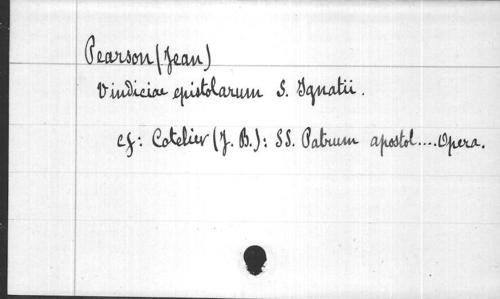 Pearson (Jean)
Vindiciae epistolarum S. Ignatii.
cf: Cotelier (J. B.): SS. Patrum apostol....Opera.